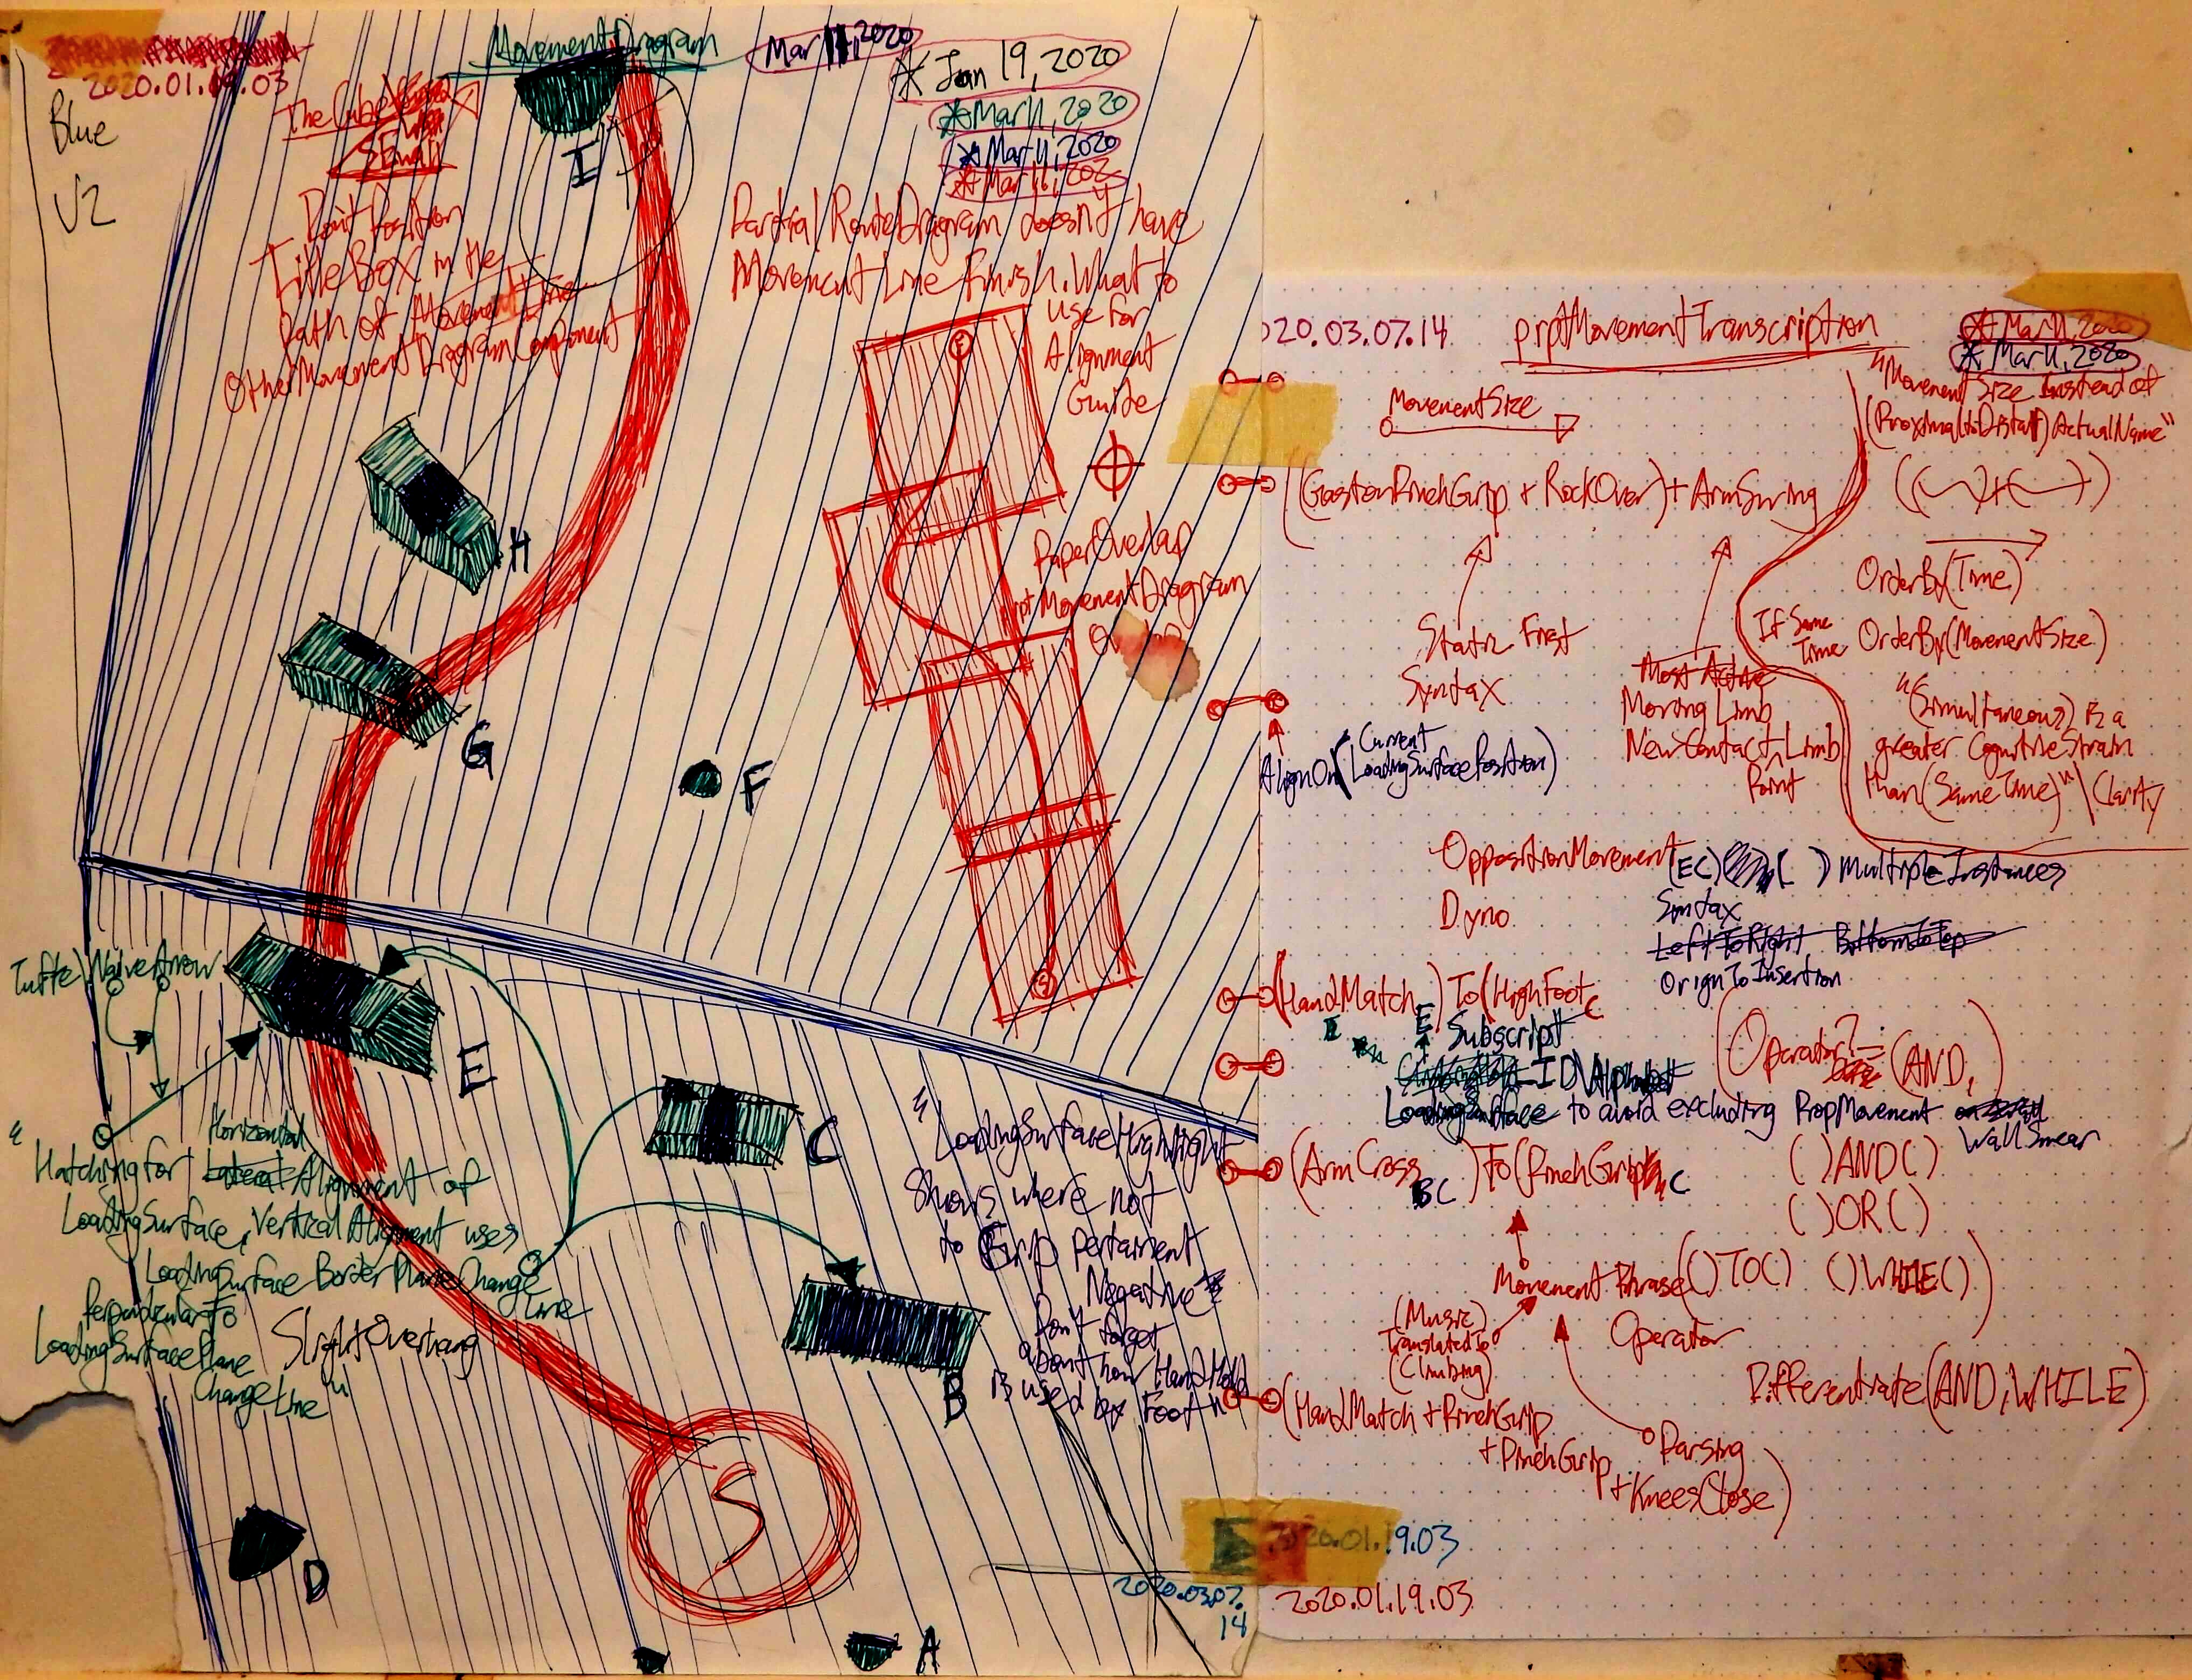 MovementDiagram
Mar 11, 2020
2020.01.19.03
Blue
V2
The Cube
Small
* Jan 19, 2020
* Mar 11, 2020
* Mar 11, 2020
* Mar 11, 202
I
Don't Position
TitleBox in the
Path of MovementLine
OtherMovementDiagramComponent
Partial RouteDiagram doesn't have
MovementLine Finish. What to
use for
Alignment
Guide
F
PaperOverlap
not MovementDiagram
H
G
F
S
Tufte\NaiveArrow
E
C
"Hatching for Horizontal Alignment of
LoadingSurface, Vertical Alignment uses
LoadingSurface Border PlaneChange
Line
Perpendicular to
LoadingSurfacePlane
ChangeLine"
SlightOverhang
"LoadingSurfaceHighlight
shows where not
to Grip pertainent
Negative
Don't forget
about how HandHold
is used by Foot"
B
S
D
A
2020.03.07.
14
020.03.07.14
prptMovementTranscription
* Mar 11, 2020
* Mar 11, 2020
MovementSize
"MovementSize Instead of
(ProximalToDistal) ActualName"
(GastonPinchGrip + RockOver) + ArmSwing
OrderBy(Time)
If Same
Time
OrderBy(MovementSize)
Static First
Syntax
Most Active
Moving Limb
NewContact Limb
Point
"(Simultaneous) is a
greater CognitiveStrain
than (SameTime)" \ Clarity
AlignOn(Current
LoadingSurfacePosition)
OppositionMovement(EC) ( ) Multiple Instances
Dyno
Syntax
LeftToRight BottomToTop
OriginToInsertion
(HandMatch E) To (HighFoot C
Subscript
ID\Alphabet
LoadingSurface to avoid excluding PropMovement
WallSmear
(Operator? = (AND,)
(ArmCross BC) To (PinchGrip C
( ) AND ( )
( ) OR ( )
MovementPhrase ( ) TO ( ) ( ) WHILE ( )
Operator
(Music)
TranslatedTo
(Climbing)
Differentiate(AND, WHILE)
(HandMatch + PinchGrip
+ PinchGrip
+ KneesClose)
Parsing
2020.01.19.03
2020.01.19.03